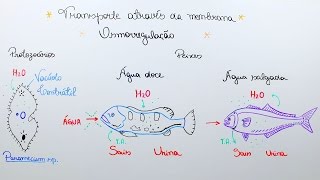 * Transporte através da membrana *
* Osmorregulação *
Protozoários
Peixes
H2O
Vacúolo
Contrátil
Paramecium sp.
Água doce
H2O
ÁGUA
T.A.
Sais Urina
Água salgada
H2O
T.A.
Sais Urina